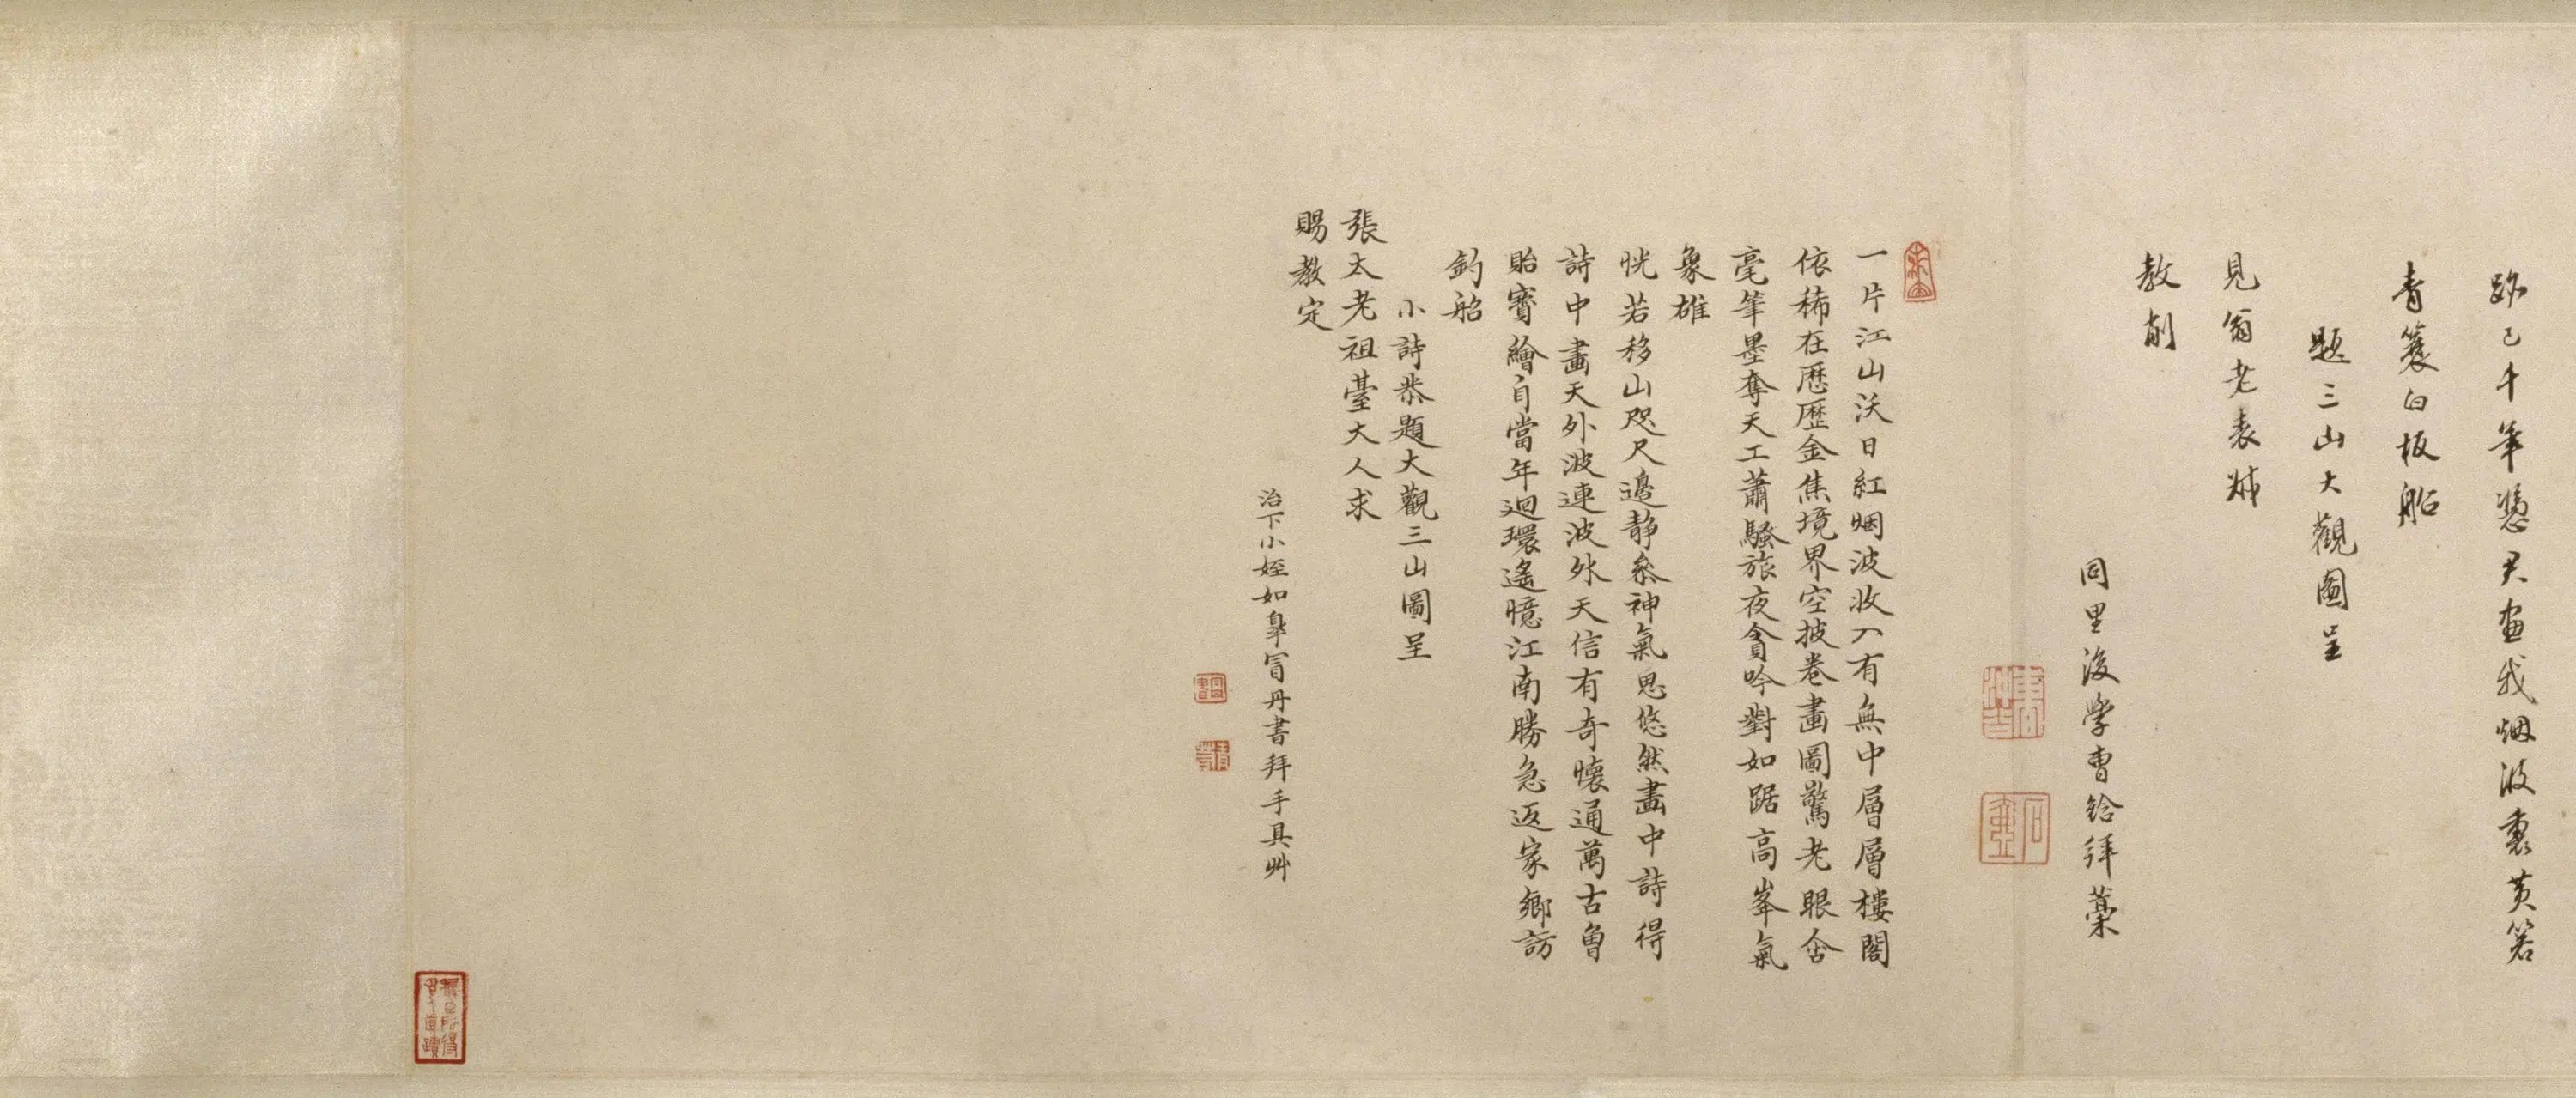 跡已千年憑君畫我烟波裏黃箬
青簑白板船
題三山大觀圖呈
見翁老表叔
教削
同里後學曹鈖拜藁
一片江山沃日紅烟波收入有無中層層樓閣
依稀在歷歷金焦境界空披卷畫圖驚老眼含
毫筆墨奪天工蕭騷旅夜貪吟對如踞高峯氣
象雄
恍若移山咫尺邊靜叅神氣思悠然畫中詩得
詩中畫天外波連波外天信有奇懷通萬古曾
貽寶繪自當年迴環遙憶江南勝急返家鄉訪
釣船
小詩恭題大觀三山圖呈
張太老祖臺大人求
賜教定
治下小姪如皋冒丹書拜手具艸